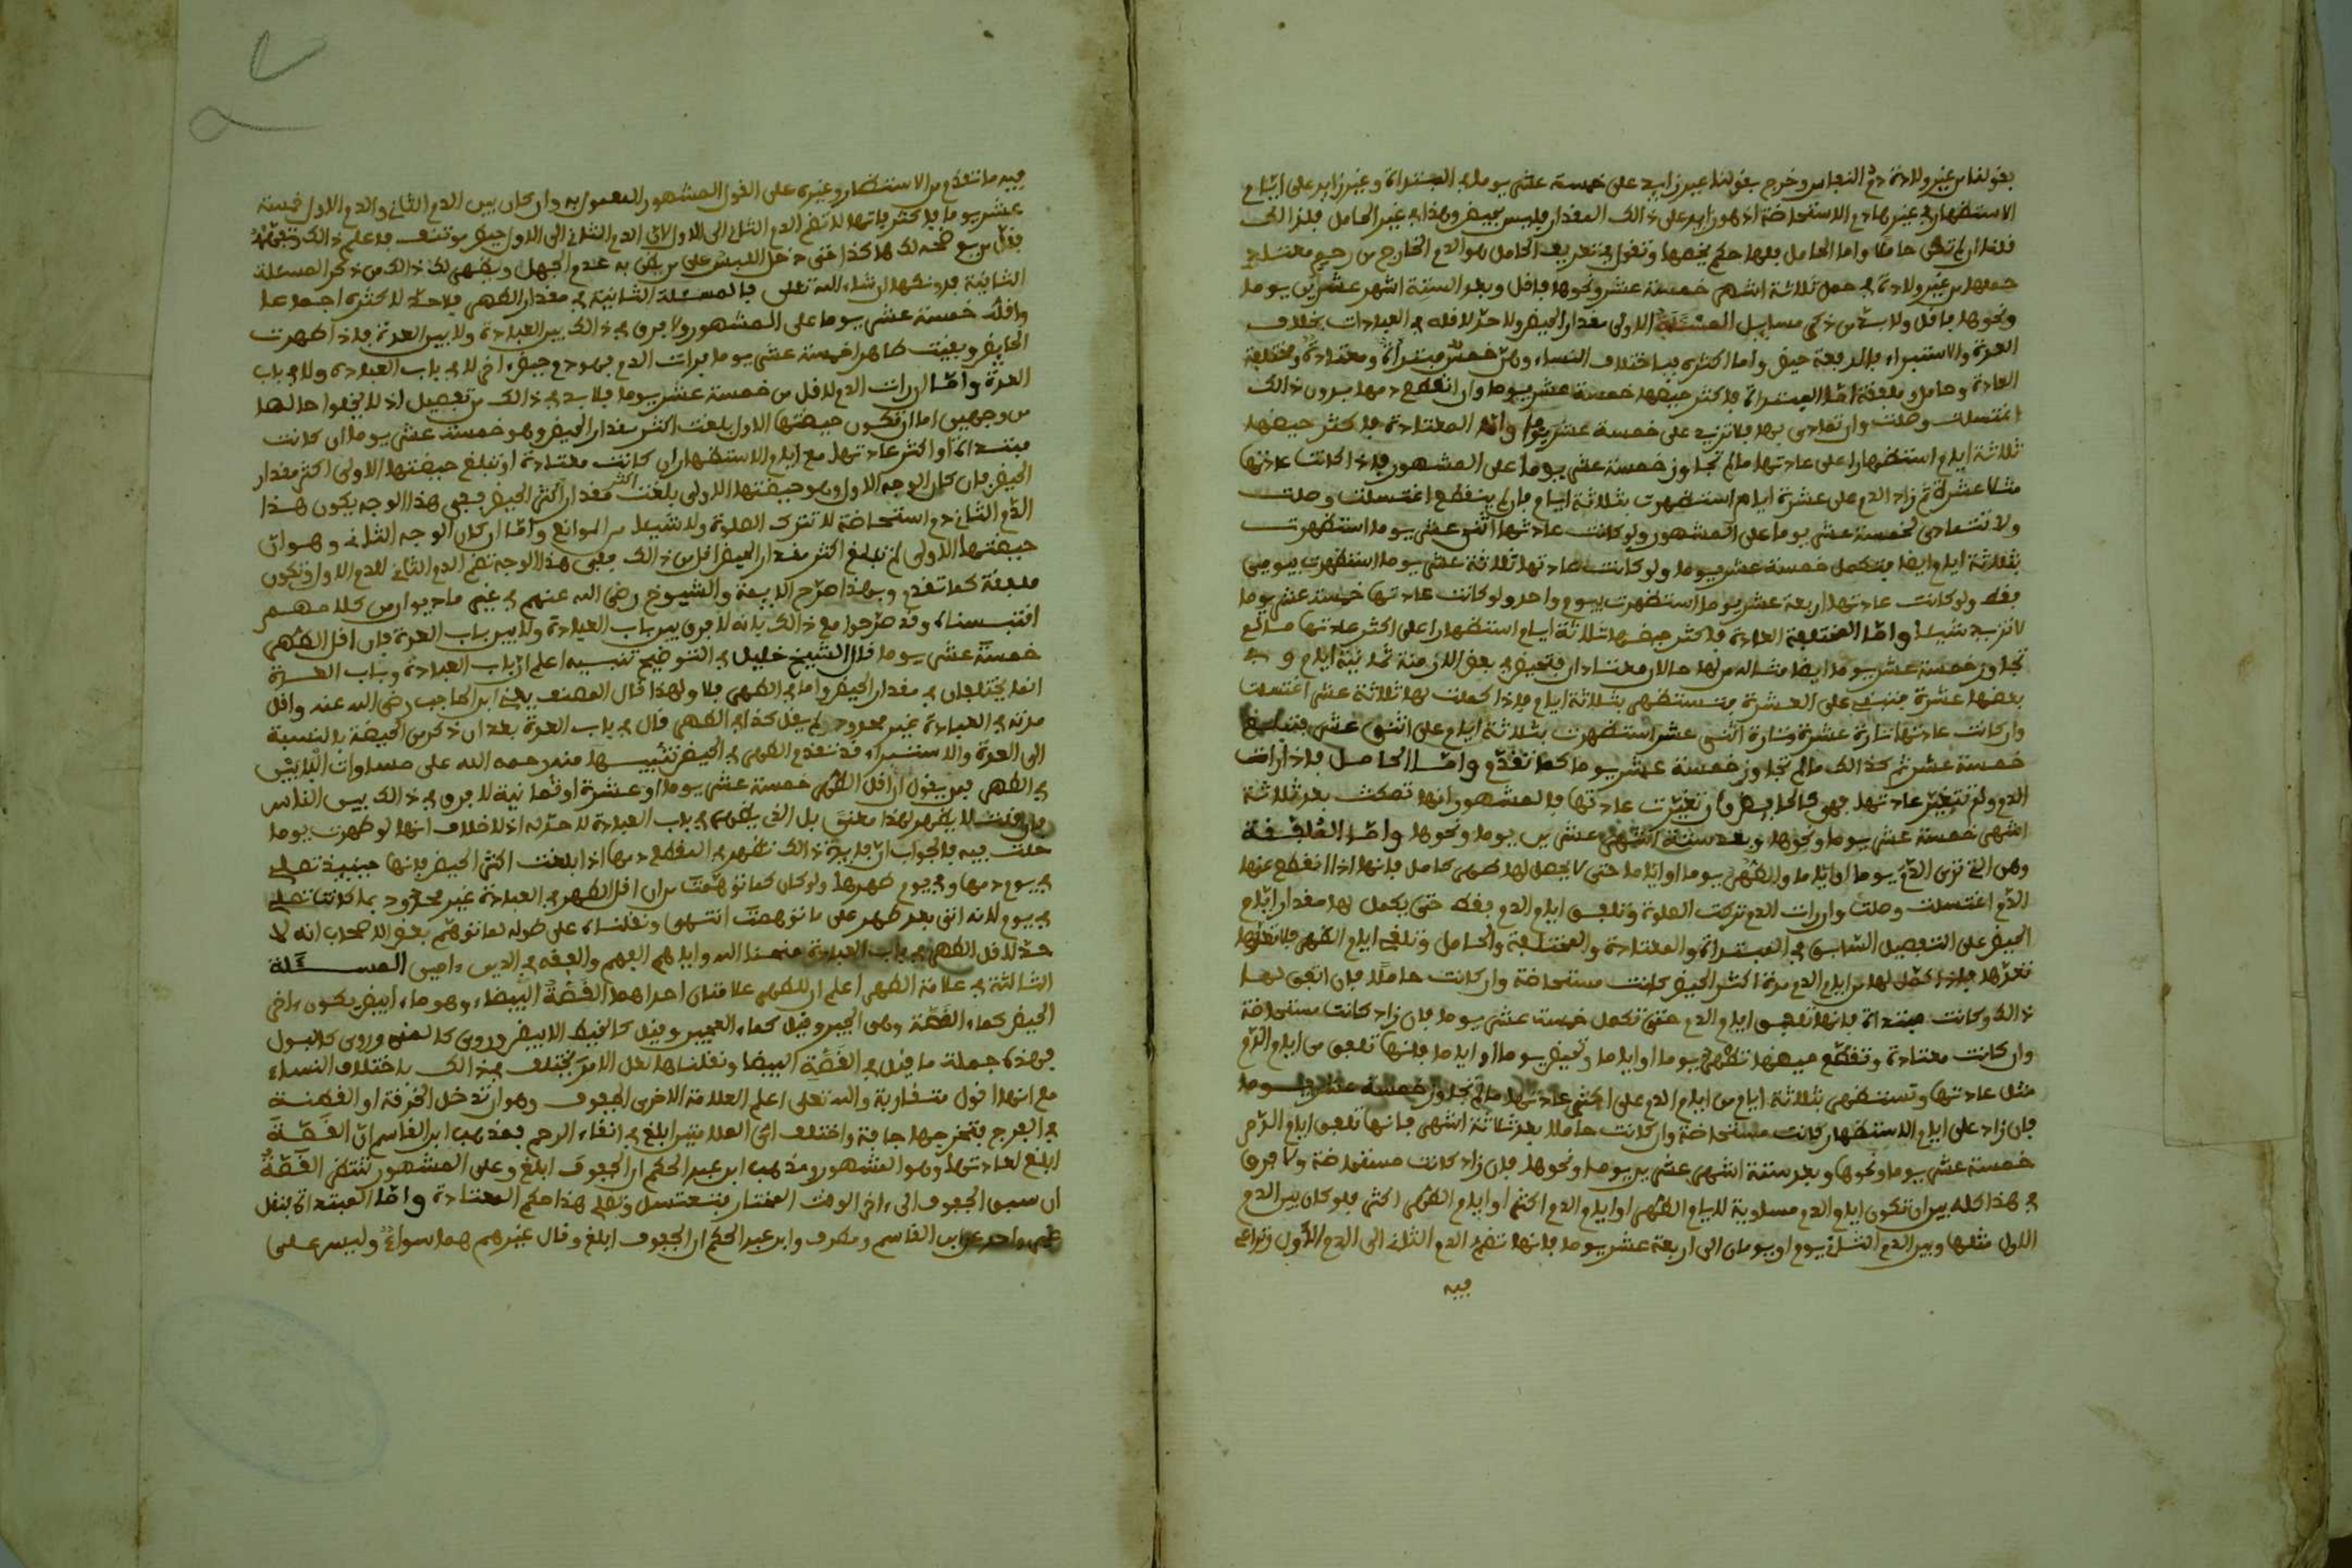 بقولنا من غير ولادة دم النفاس وخرج بقولنا غير زايد على خمسة عشر يوما في المبتدأة وغير زايد على أيام
الاستظهار في غيرها دم الاستحاضة إذ هو زايد على ذالك المقدار فليس بحيض وهذا في غير الحامل فلذالك
قلنا ان لم تكن حاملا واما الحامل فلها حكم يخصها وتقول في تعريف الحامل هو الدم الخارج من رحم معتاد
حملها من غير ولادة في حمل ثلاثة اشهر خمسة عشر ونحوها فاقل وبعد الستة اشهر عشرين يوما
ونحوها فاقل ولا بد من ذكر مسايل المسئلة الاولى مقدار الحيض ولا حد لاقله في العبادات بخلاف
العدة والاستبراء فالدفعة حيض واما اكثره فباختلاف النساء وهن خمس مبتدأة ومعتادة ومختلفة
العادة وحامل وملفقة اما المبتدأة فاكثر حيضها خمسة عشر يوما وان انقطع دمها بدون ذالك
اغتسلت وصلت وان تمادى بها فلا تزيد على خمسة عشر يوما واما المعتادة فاكثر حيضها
ثلاثة ايام استظهارا على عادتها ما لم تجاوز خمسة عشر يوما على المشهور فاذا كانت عادتها
مثلا عشرة ثم زاد الدم على عشرة ايام استظهرت بثلاثة ايام فان لم ينقطع اغتسلت وصلت
ولا تتمادى لخمسة عشر يوما على المشهور ولو كانت عادتها اثنى عشر يوما استظهرت
بثلاثة ايام ايضا فتكمل خمسة عشر يوما ولو كانت عادتها ثلاثة عشر يوما استظهرت بيومين
فقط ولو كانت عادتها اربعة عشر يوما استظهرت بيوم واحد ولو كانت عادتها خمسة عشر يوما
لا تزيد شيئا واما المختلفة العادة فاكثر حيضها ثلاثة ايام استظهارا على اكثر عادتها ما لم
تجاوز خمسة عشر يوما ايضا مثاله من لها حالان معتادان فتحيض في بعض الازمنة ثمانية ايام وفي
بعضها عشرة فتبني على العشرة فتستظهر بثلاثة ايام فاذا كملت لها ثلاثة عشر اغتسلت
وان كانت عادتها تارة عشرة وتارة اثنى عشر استظهرت بثلاثة ايام على اثنى عشر فتبلغ
خمسة عشر ثم كذالك ما لم تجاوز خمسة عشر يوما كما تقدم واما الحامل فاذا رات
الدم ولم تتغير عادتها فهي كالحايض وان تغيرت عادتها فالمشهور انها تمكث بعد ثلاثة
اشهر خمسة عشر يوما ونحوها وبعد ستة اشهر عشرين يوما ونحوها واما الملفقة
وهي التي ترى الدم يوما او اياما والطهر يوما او اياما حتى لا يحصل لها طهر كامل فانها اذا انقطع عنها
الدم اغتسلت وصلت وان رات الدم تركت الصلوة وتلفق ايام الدم فقط حتى يكمل لها مقدار ايام
الحيض على التفصيل السابق في المبتدأة والمعتادة والمختلفة والحامل وتلغي ايام الطهر فلا
تعدها فاذا كمل لها من ايام الدم مدة اكثر الحيض كانت مستحاضة وان كانت حاملا فان اتفق لها
ذالك وكانت مبتدأة فانها تلفق ايام الدم حتى تكمل خمسة عشر يوما فان زاد كانت مستحاضة
وان كانت معتادة وتقطع حيضها تطهر يوما او اياما وتحيض يوما او اياما فانها تلفق من ايام الدم
مثل عادتها وتستظهر بثلاثة ايام من ايام الدم على اكثر عادتها ما لم تجاوز خمسة عشر يوما
فان زاد على ايام الاستظهار كانت مستحاضة وان كانت حاملا بعد ثلاثة اشهر فانها تلفق ايام الدم
خمسة عشر يوما ونحوها وبعد ستة اشهر عشرين يوما ونحوها فان زاد كانت مستحاضة ولا فرق
في هذا كله بين ان تكون ايام الدم مساوية لايام الطهر او ايام الدم اكثر او ايام الطهر اكثر فلو كان بين الدم
الاول مثلها وبين الدم الثاني يوم او يومان الى اربعة عشر يوما فانها تضم الدم الثاني الى الدم الاول وتراعي
فيه
فيه ما تقدم من الاستظهار وغيره على القول المشهور المعمول به وان كان بين الدم الثاني والدم الاول خمسة
عشر يوما فاكثر فانها لا تضم الدم الثاني الى الاول لان الدم الثاني الى الاول حيض موتنف فاعلم ذالك
الثانية فدونكها ان شاء الله تعلى فالمسئلة الثانية في مقدار الطهر فلا حد لاكثره اجماعا
واقله خمسة عشر يوما على المشهور ولا فرق في ذالك بين العبادة ولا بين العدة فاذا طهرت
الحايض وبقيت طاهرا خمسة عشر يوما فرات الدم فهو دم حيض اخر لا في باب العبادة ولا في باب
العدة واما ان رات الدم لاقل من خمسة عشر يوما فلا بد في ذالك من تفصيل اذ لا يخلوا حالها
من وجهين اما ان تكون حيضتها الاولى بلغت اكثر مقدار الحيض وهو خمسة عشر يوما ان كانت
مبتدأة او اكثر عادتها مع ايام الاستظهار ان كانت معتادة او تبلغ حيضتها الاولى اكثر مقدار
الحيض فان كان الوجه الاول وهو حيضتها الاولى بلغت اكثر مقدار الحيض ففي هذا الوجه يكون هذا
الدم الثاني دم استحاضة لا تترك الصلوة ولا شيئا من الموانع واما ان كان الوجه الثاني وهو ان
حيضتها الاولى لم تبلغ اكثر مقدار الحيض اقل من ذالك ففي هذا الوجه تضم الدم الثاني للدم الاول وتكون
ملفقة كما تقدم وبهذا صرح الايمة والشيوخ رضي الله عنهم في غير ما ديوان من كلامهم
اقتبسناه وقد صرحوا مع ذالك بانه لا فرق بين باب العبادة ولا بين باب العدة فان اقل الطهر
خمسة عشر يوما قال الشيخ خليل في التوضيح تنبيه اعلم ان باب العبادة وباب العدة
انما يختلفان في مقدار الحيض واما في الطهر فلا ولهذا قال المصنف يعني ابن الحاجب رضي الله عنه واقل
مدته في العبادة غير محدود ولم يقل كذا في الطهر قال في باب العدة بعد ان ذكر من الحيضة بالنسبة
الى العدة والاستبراء قد تقدم الطهر في الحيض تنبيها منه رحمه الله على مساوات البابين
في الطهر فمن يقول ان اقل الطهر خمسة عشر يوما او عشرة او ثمانية لا فرق في ذالك بين الناس
فان قلت لا يظهر لهذا معنى بل الذي يظهر في باب العبادة لا حد له اذ لا خلاف انها لو طهرت يوما
صلت فيه فالجواب ان فايدة ذالك تظهر في المقطع دمها اذا بلغت اكثر الحيض فانها حينيذ تصلي
في يوم دمها وفي يوم طهرها ولو كان كما توهمت من ان اقل الطهر في العبادة غير محدود بما كانت تصلي
في يوم لانه اتى بعد طهر على ما توهمت انتهى ونقلناه على طوله لما توهم بعض الاصحاب انه لا
حد لاقل الطهر في باب العبادة منحنا الله واياهم الفهم والفقه في الدين ءامين المسئلة
الثالثة في علامة الطهر اعلم ان للطهر علامتان احداهما القصة البيضاء وهو ماء ابيض يكون ءاخر
الحيض كماء القصة وهي الجير وقيل كماء العجين وقيل كالخيط الابيض وروي كالمني وروي كالبول
فهذه جملة ما قيل في القصة البيضا ونقلناها لعل الامر يختلف في ذالك باختلاف النساء
مع انها اقول متقاربة والله تعلى اعلم العلامة الاخرى الجفوف وهو ان تدخل الخرقة او القطنة
في الفرج فتخرجها جافة واختلف اى العلامتين ابلغ في انقاء الرحم فمذهب ابن القاسم ان القصة
ابلغ لعادتها وهو المشهور ومذهب ابن عبد الحكم ان الجفوف ابلغ وعلى المشهور تنتظر القصة
ان سبق الجفوف الى ءاخر الوقت المختار فتغتسل وتصلي هذا حكم المعتادة واما المبتدأة فنقل
غير واحد عن ابن القاسم ومطرف وابن عبد الحكم ان الجفوف ابلغ وقال غيرهم هما سواء وليس على